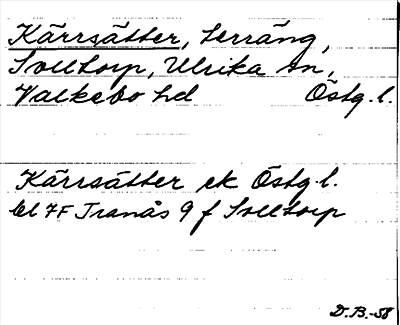 Kärrsätter, terräng,
Solltorp, Ulrika sn,
Valkebo hd Östg.l.
Kärrsätter ek Östg.l.
bl 7F Tranås 9 f Solltorp
D.B.-58